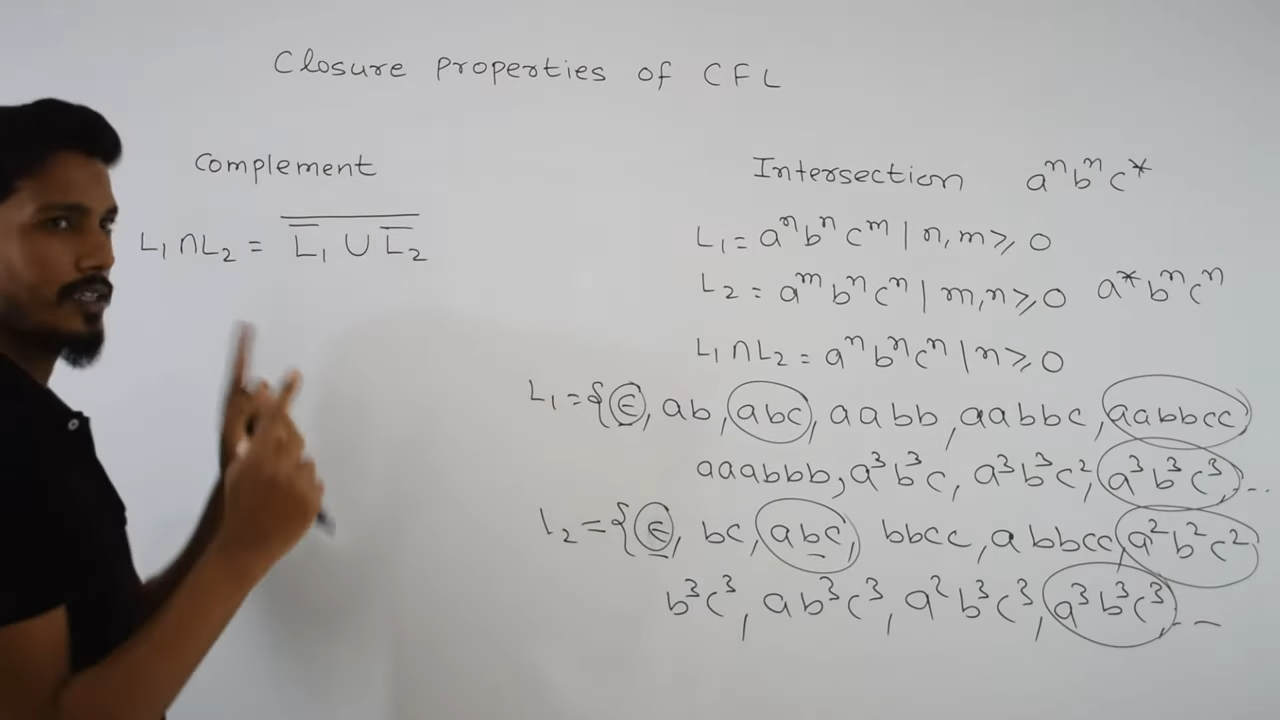 Closure properties of CFL
Complement
L₁ ∩ L₂ = \overline{\overline{L₁} ∪ \overline{L₂}}
Intersection aⁿbⁿc*
L₁ = aⁿbⁿcᵐ | n,m ≥ 0
L₂ = aᵐbⁿcⁿ | m,n ≥ 0 a*bⁿcⁿ
L₁ ∩ L₂ = aⁿbⁿcⁿ | n ≥ 0
L₁ = {ϵ, ab, abc, aabb, aabbc, aabbcc
aaabbb, a³b³c, a³b³c², a³b³c³, ...
L₂ = {ϵ, bc, abc, bbcc, abbcc, a²b²c²
b³c³, ab³c³, a²b³c³, a³b³c³, ...